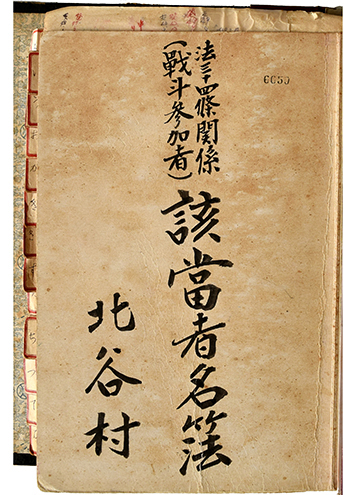 法三十四條関係
(戰斗参加者)
該當者名簿
北谷村
6650